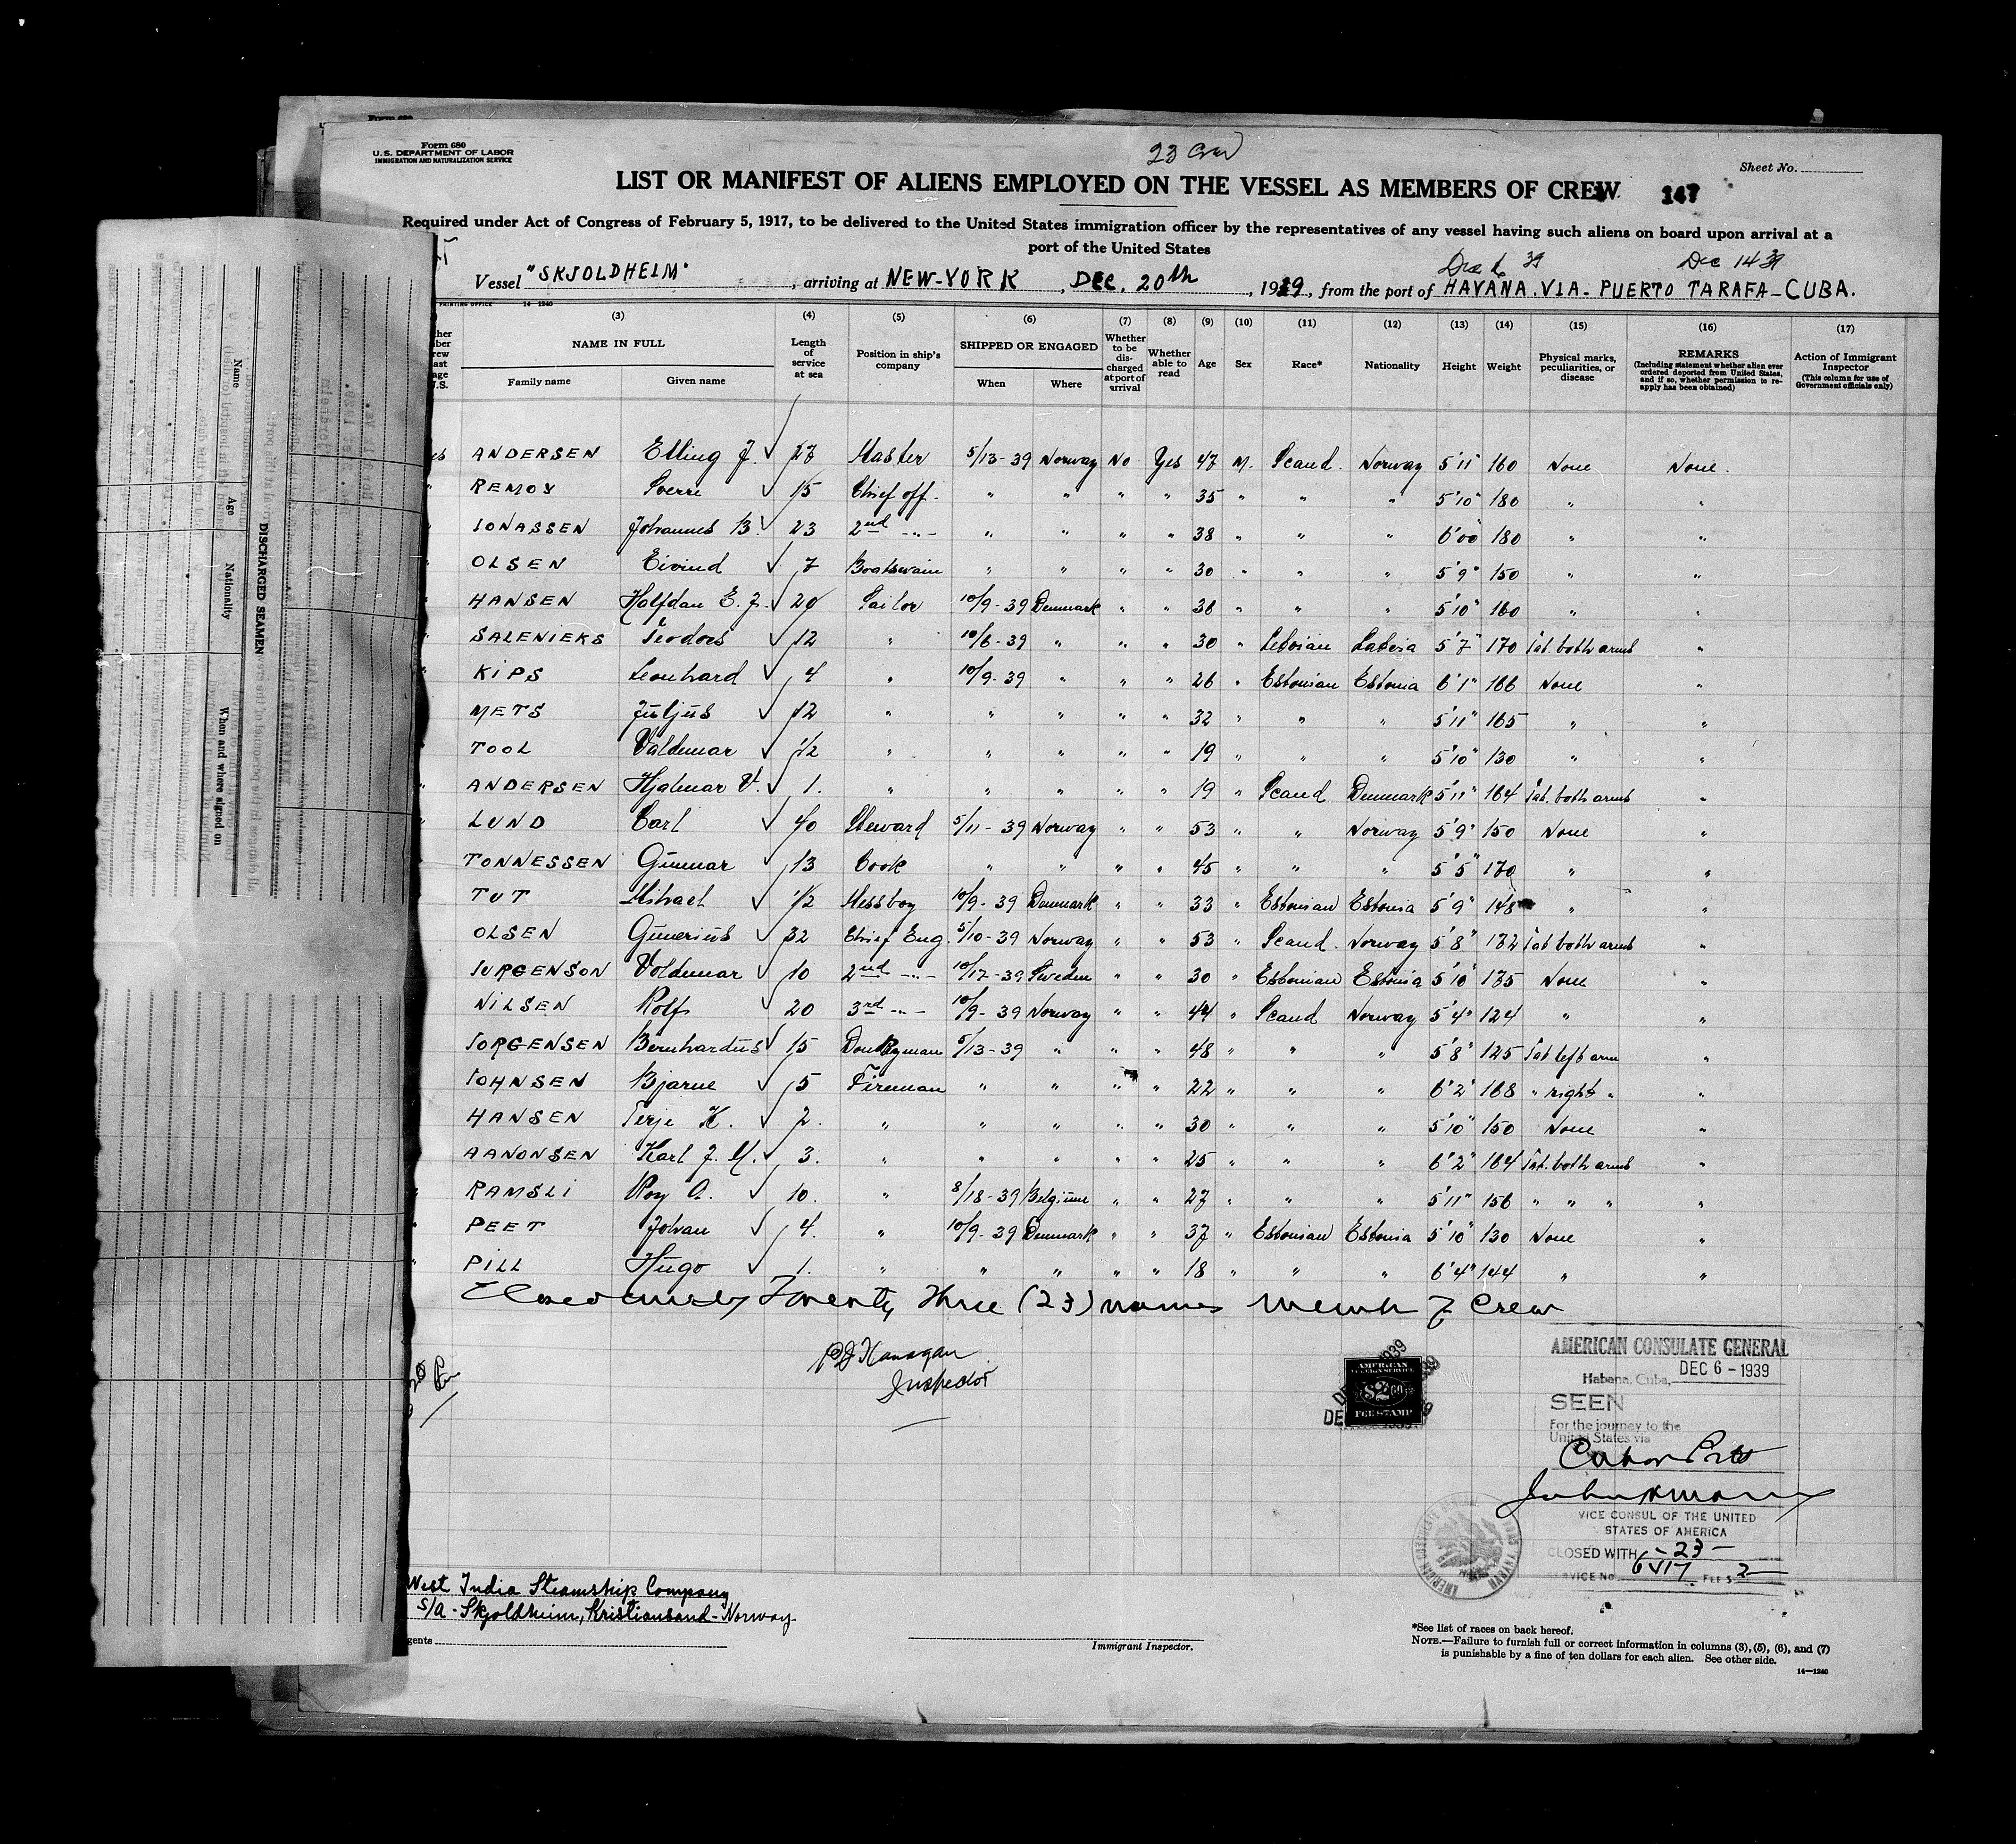 Form 680
U.S. DEPARTMENT OF LABOR
IMMIGRATION AND NATURALIZATION SERVICE
23 Crew
Sheet No.
LIST OR MANIFEST OF ALIENS EMPLOYED ON THE VESSEL AS MEMBERS OF CREW
147
Required under Act of Congress of February 5, 1917, to be delivered to the United States immigration officer by the representatives of any vessel having such aliens on board upon arrival at a
port of the United States
Dec 6 39 Dec 14 39
Vessel "SKJOLDHEIM", arriving at NEW-YORK, DEC. 20th, 1939, from the port of HAVANA. VIA- PUERTO TARAFA-CUBA.
PRINTING OFFICE 14-1240
(3) (4) (5) (6) (7) (8) (9) (10) (11) (12) (13) (14) (15) (16) (17)
NAME IN FULL Family name Given name
Length of service at sea
Position in ship's company
SHIPPED OR ENGAGED When Where
Whether to be discharged at port of arrival
Whether able to read
Age Sex Race* Nationality Height Weight
Physical marks, peculiarities, or disease
REMARKS
(Including statement whether alien ever ordered deported from United States, and if so, whether permission to reapply has been obtained)
Action of Immigrant Inspector
(This column for use of Government officials only)
ANDERSEN Elling J. 27 Master 5/13-39 Norway No Yes 47 M. Scand. Norway 5'11" 160 None None.
REMOY Sverre 15 Chief off. " " " " 35 " " " 5'10" 180 " "
JONASSEN Johannes B. 23 2nd -"- " " " " 38 " " " 6'00" 180 " "
OLSEN Eivind 7 Boatswain " " " " 30 " " " 5'9" 150 " "
HANSEN Halfdan E. J. 20 Sailor 10/9-39 Denmark " " 36 " " " 5'10" 160 " "
SALENIEKS Teodors 12 " 10/6-39 " " " 30 " Letvian Latvia 5'7" 170 Tat. both arms "
KIPS Leonhard 4 " 10/9-39 " " " 26 " Estonian Estonia 6'1" 166 None "
METS Juljus 12 " " " " " 32 " " " 5'11" 165 " "
TOOL Valdemar 1/2 " " " " " 19 " " " 5'10" 130 " "
ANDERSEN Hjalmar V. 1. " " " " " 19 " Scand. Denmark 5'11" 164 Tat. both arms "
LUND Carl 40 Steward 5/11-39 Norway " " 53 " " Norway 5'9" 150 None "
TONNESSEN Gunnar 13 Cook " " " " 45 " " " 5'5" 170 " "
TUT Mihael 1/2 Messboy 10/9-39 Denmark " " 33 " Estonian Estonia 5'9" 148 " "
OLSEN Gunerius 32 Chief Eng. 5/10-39 Norway " " 53 " Scand. Norway 5'8" 172 Tat both arms "
JURGENSON Voldemar 10 2nd -"- 10/17-39 Sweden " " 30 " Estonian Estonia 5'10" 135 None "
NILSEN Rolf 20 3rd -"- 10/9-39 Norway " " 44 " Scand Norway 5'4" 124 " "
JORGENSEN Bernhardus 15 Donkeyman 5/13-39 " " " 48 " " " 5'8" 125 Tat left arm "
JOHNSEN Bjarne 5 Fireman " " " " 22 " " " 6'2" 168 " right " "
HANSEN Terje K. 2. " " " " " 30 " " " 5'10" 150 None "
AANONSEN Karl J. M. 3. " " " " " 25 " " " 6'2" 164 Tat. both arms "
RAMSLI Roy A. 10. " 8/18-39 Belgium " " 27 " " " 5'11" 156 " " " "
PEET Johan 4. " 10/9-39 Denmark " " 37 " Estonian Estonia 5'10" 130 None "
PILL Hugo 1. " " " " " 18 " " " 6'4" 144 " "
Twenty three (23) names Crew
Inspector
AMERICAN FOREIGN SERVICE $2.00 FEE STAMP
AMERICAN CONSULATE GENERAL
Habana, Cuba, DEC 6-1939
SEEN
For the journey to the
United States via
VICE CONSUL OF THE UNITED
STATES OF AMERICA
CLOSED WITH -23-
SERVICE No. 6517 FEE $ 2
West India Steamship Company
S/A-Skjoldheim, Kristiansand-Norway.
Immigrant Inspector.
*See list of races on back hereof.
NOTE.—Failure to furnish full or correct information in columns (3), (5), (6), and (7)
is punishable by a fine of ten dollars for each alien. See other side.
14-1240
DISCHARGED SEAMEN
Name
Age
Nationality
When and where signed on